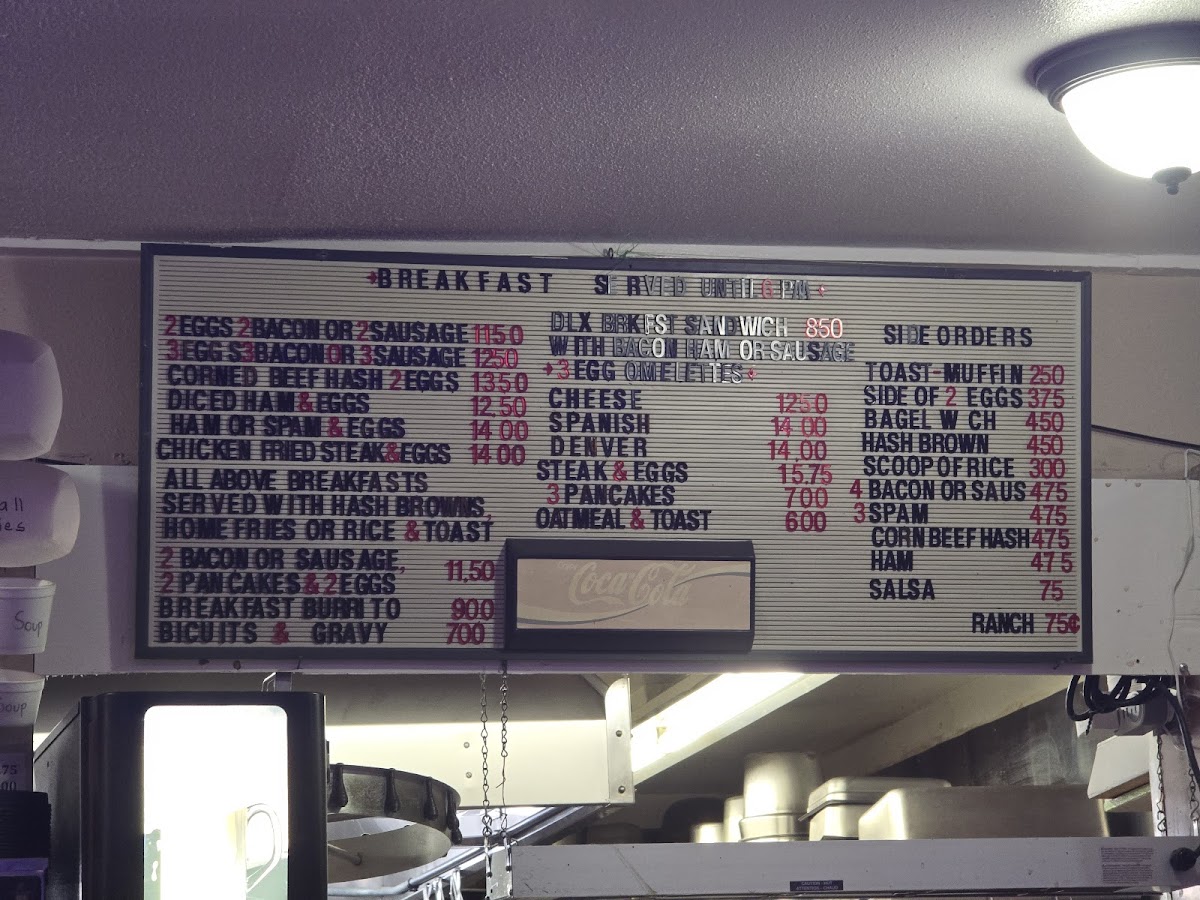 BREAKFAST SERVED UNTIL 6 PM
2 EGGS 2 BACON OR 2 SAUSAGE 1150
3 EGGS 3 BACON OR 3 SAUSAGE 1250
CORNED BEEF HASH 2 EGGS 1350
DICED HAM & EGGS 12.50
HAM OR SPAM & EGGS 14.00
CHICKEN FRIED STEAK & EGGS 14.00
ALL ABOVE BREAKFASTS
SERVED WITH HASH BROWNS,
HOME FRIES OR RICE & TOAST
2 BACON OR SAUSAGE,
2 PANCAKES & 2 EGGS 11.50
BREAKFAST BURRITO 900
BICUITS & GRAVY 700
DLX BRKFST SANDWICH 850
WITH BACON HAM OR SAUSAGE
3 EGG OMELETTES
CHEESE 1250
SPANISH 14.00
DENVER 14.00
STEAK & EGGS 15.75
3 PANCAKES 700
OATMEAL & TOAST 600
Enjoy
Coca-Cola
SIDE ORDERS
TOAST-MUFFIN 250
SIDE OF 2 EGGS 375
BAGEL W CH 450
HASH BROWN 450
SCOOP OF RICE 300
4 BACON OR SAUS 475
3 SPAM 475
CORN BEEF HASH 475
HAM 475
SALSA 75
RANCH 75¢
all
ies
Soup
Soup
.75